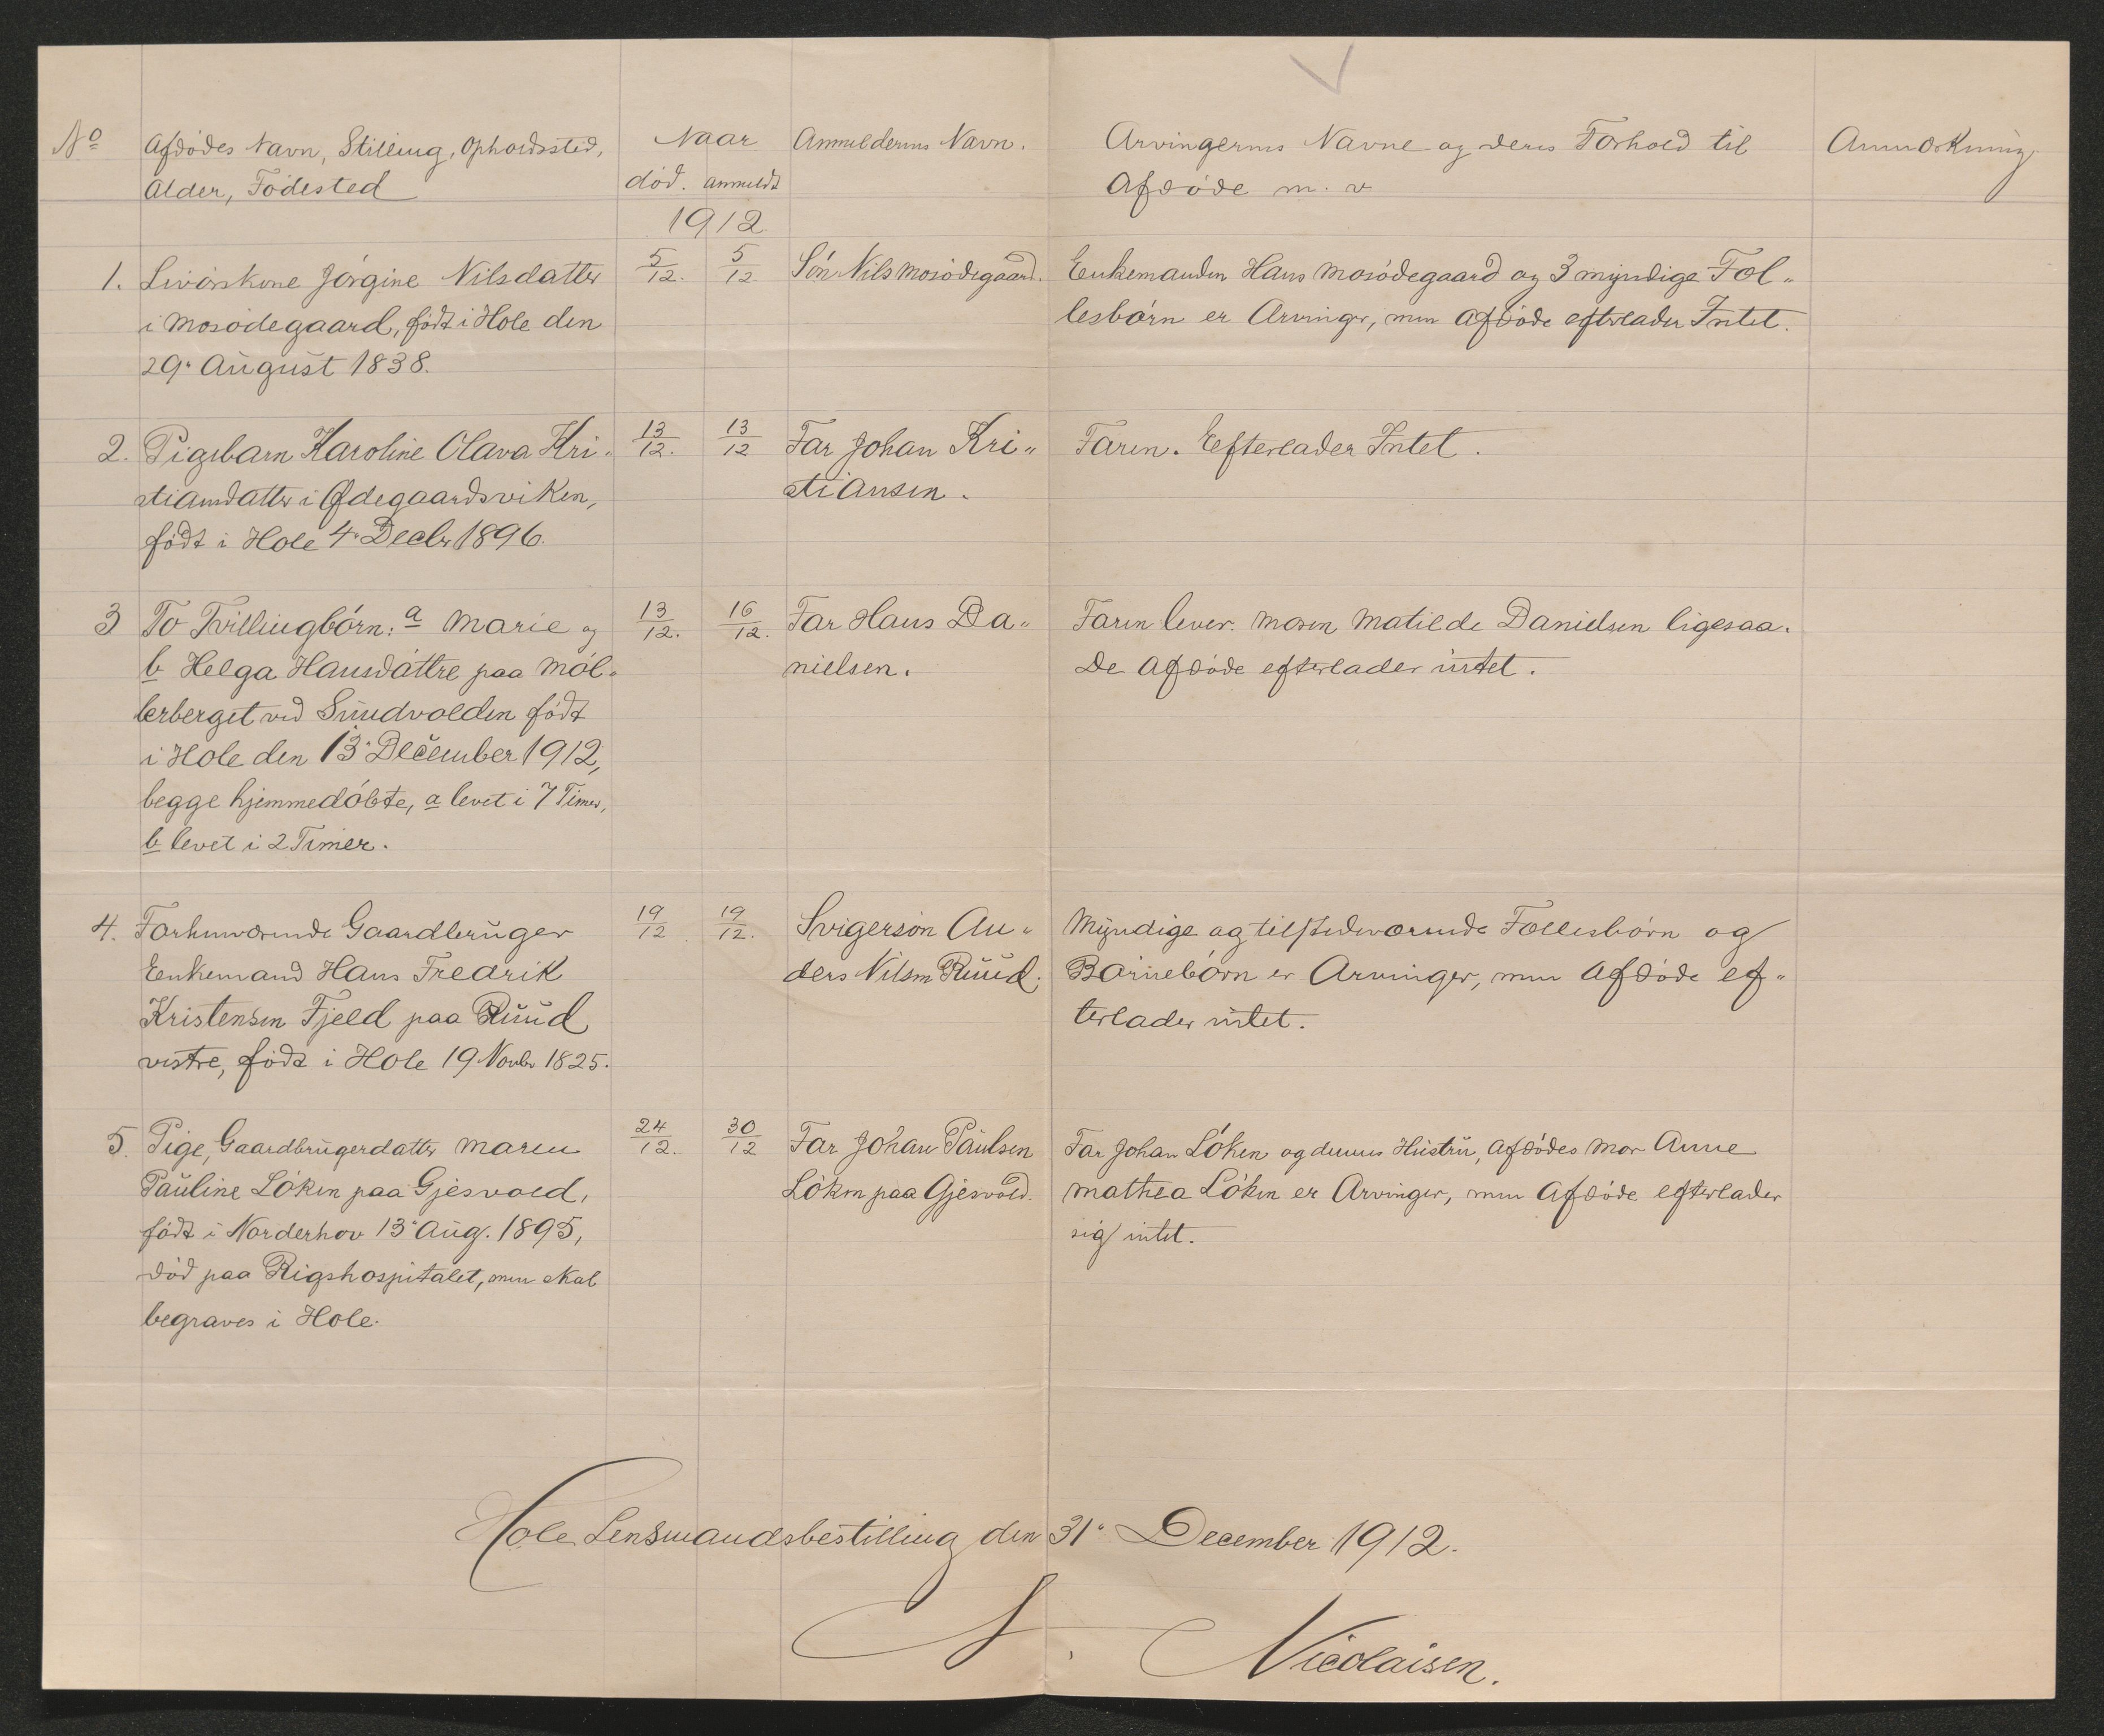 No
Afdödes Navn, Stilling, Opholdssted,
Alder, Födested
Naar
död. anmeldt
Anmelderens Navn.
Arvingernes Navne og deres Forhold til
Afdöde m. v
Anmærkning.
1912
1. Livörskone Jörgine Nilsdatter
i Mosödegaard, födt i Hole den
29. August 1838.
5/12. 5/12
Sön Nils Mosödegaard.
Enkemanden Hans Mosödegaard og 3 myndige Fæl„
lesbörn er Arvinger, men Afdöde efterlader Intet.
2. Pigebarn Karoline Olava Kri„
stiansdatter i Ødegaardsviken,
födt i Hole 4. Decbr 1896.
13/12. 13/12
Far Johan Kri„
stiansen.
Faren. Eefterlader Intet.
3 To Tvillingbörn: a Marie og
b Helga Hansdöttre paa Möl„
lerberget ved Sundvolden födt
i Hole den 13. December 1912,
begge hjemmedöbte, a levet i 7 Timer,
b levet i 2 Timer.
13/12. 16/12.
Far Hans Da„
nielsen.
Faren lever. Moren Matilde Danielsen ligesaa.
De Afdöde efterlader intet.
4. Forhenværende Gaardbruger
Enkemand Hans Fredrik
Kristensen Fjeld paa Ruud
vestre, födt i Hole 19 Novbr 1825.
19/12 19/12.
Svigersön An„
ders Nilsen Ruud.
Myndige og tilstedeværende Fællesbörn og
Börnebörn er Arvinger, men Afdöde ef„
terlader intet.
5. Pige, Gaardbrugerdatter Maren
Pauline Löken paa Gjesvold,
födt i Norderhov 13. Aug. 1895,
död paa Rigshospitalet, men skal
begraves i Hole.
24/12. 30/12
Far Johan Paulsen
Löken paa Gjesvold.
Far Johan Löken og dennes Hustru, Afdödes Mor Anne
Mathea Löken er Arvinger, men Afdöde efterlader
sig intet.
Hole Lensmandsbestilling den 31. December 1912.
N. Nicolaisen.